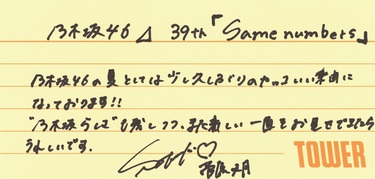 乃木坂46 39th「Same numbers」
乃木坂46の夏としては少し久しぶりのかっこいい楽曲に
なっております!!
"乃木坂らしさ"も残しつつ、また新しい一面をお見せできたら
うれしいです。
TOWER